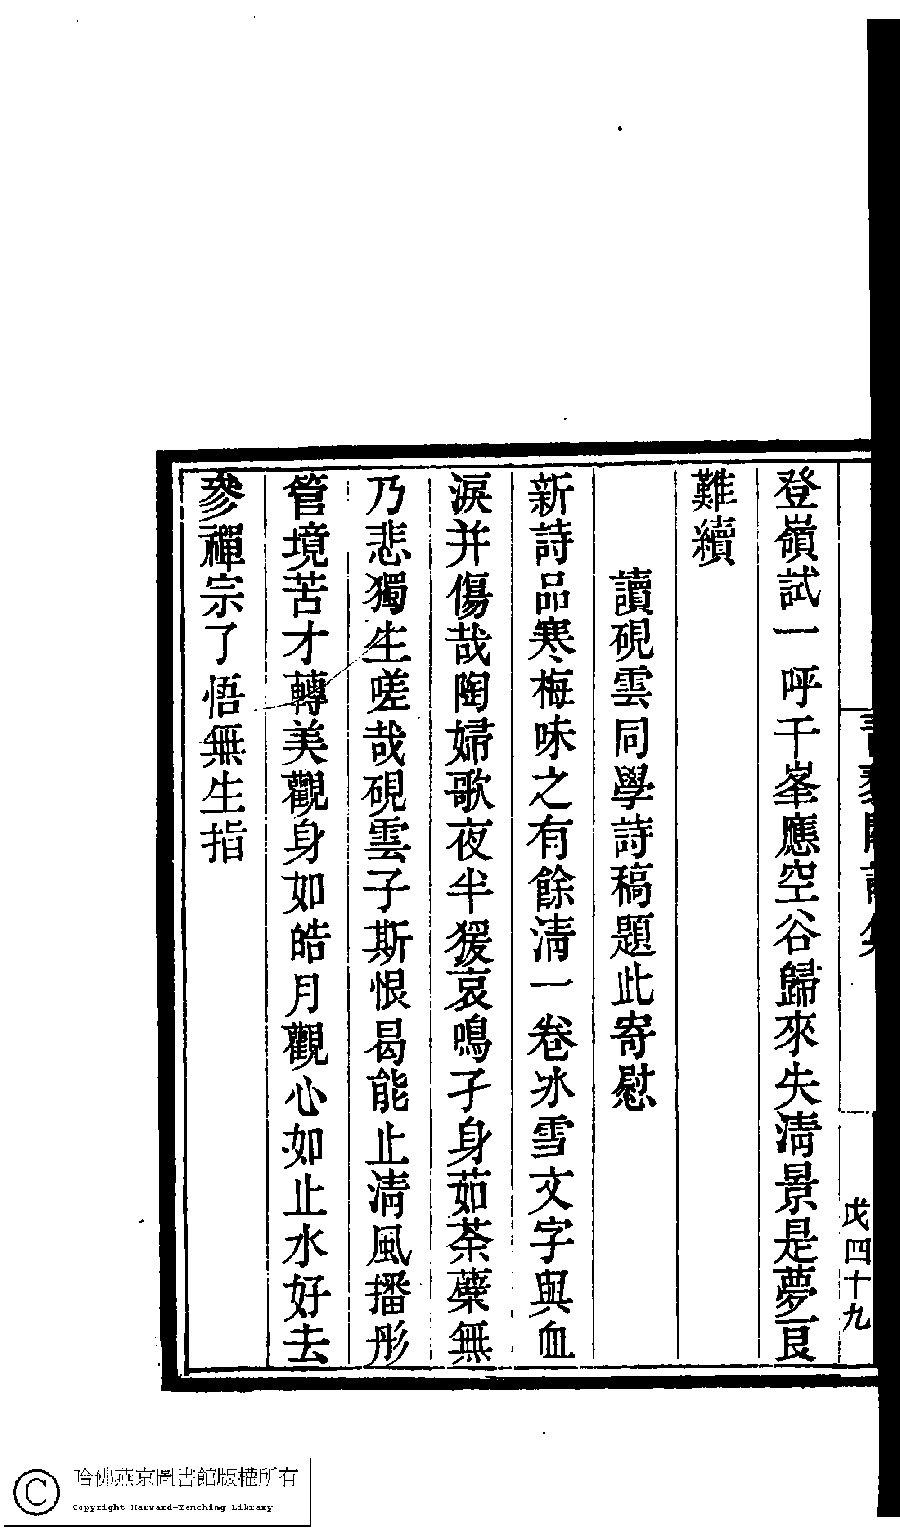 登嶺試一呼千峯應空谷歸來失清景是夢良
難續
讀硯雲同學詩稿題此寄慰
新詩品寒梅味之有餘清一卷冰雪文字與血
淚并傷哉陶婦歌夜半猨哀鳴孑身茹荼蘗無
乃悲獨生嗟哉硯雲子斯恨曷能止清風播彤
管境苦才轉美觀身如皓月觀心如止水好去
參禪宗了悟無生指
戊四十九
哈佛燕京圖書館版權所有
Copyright Harvard-Yenching Library